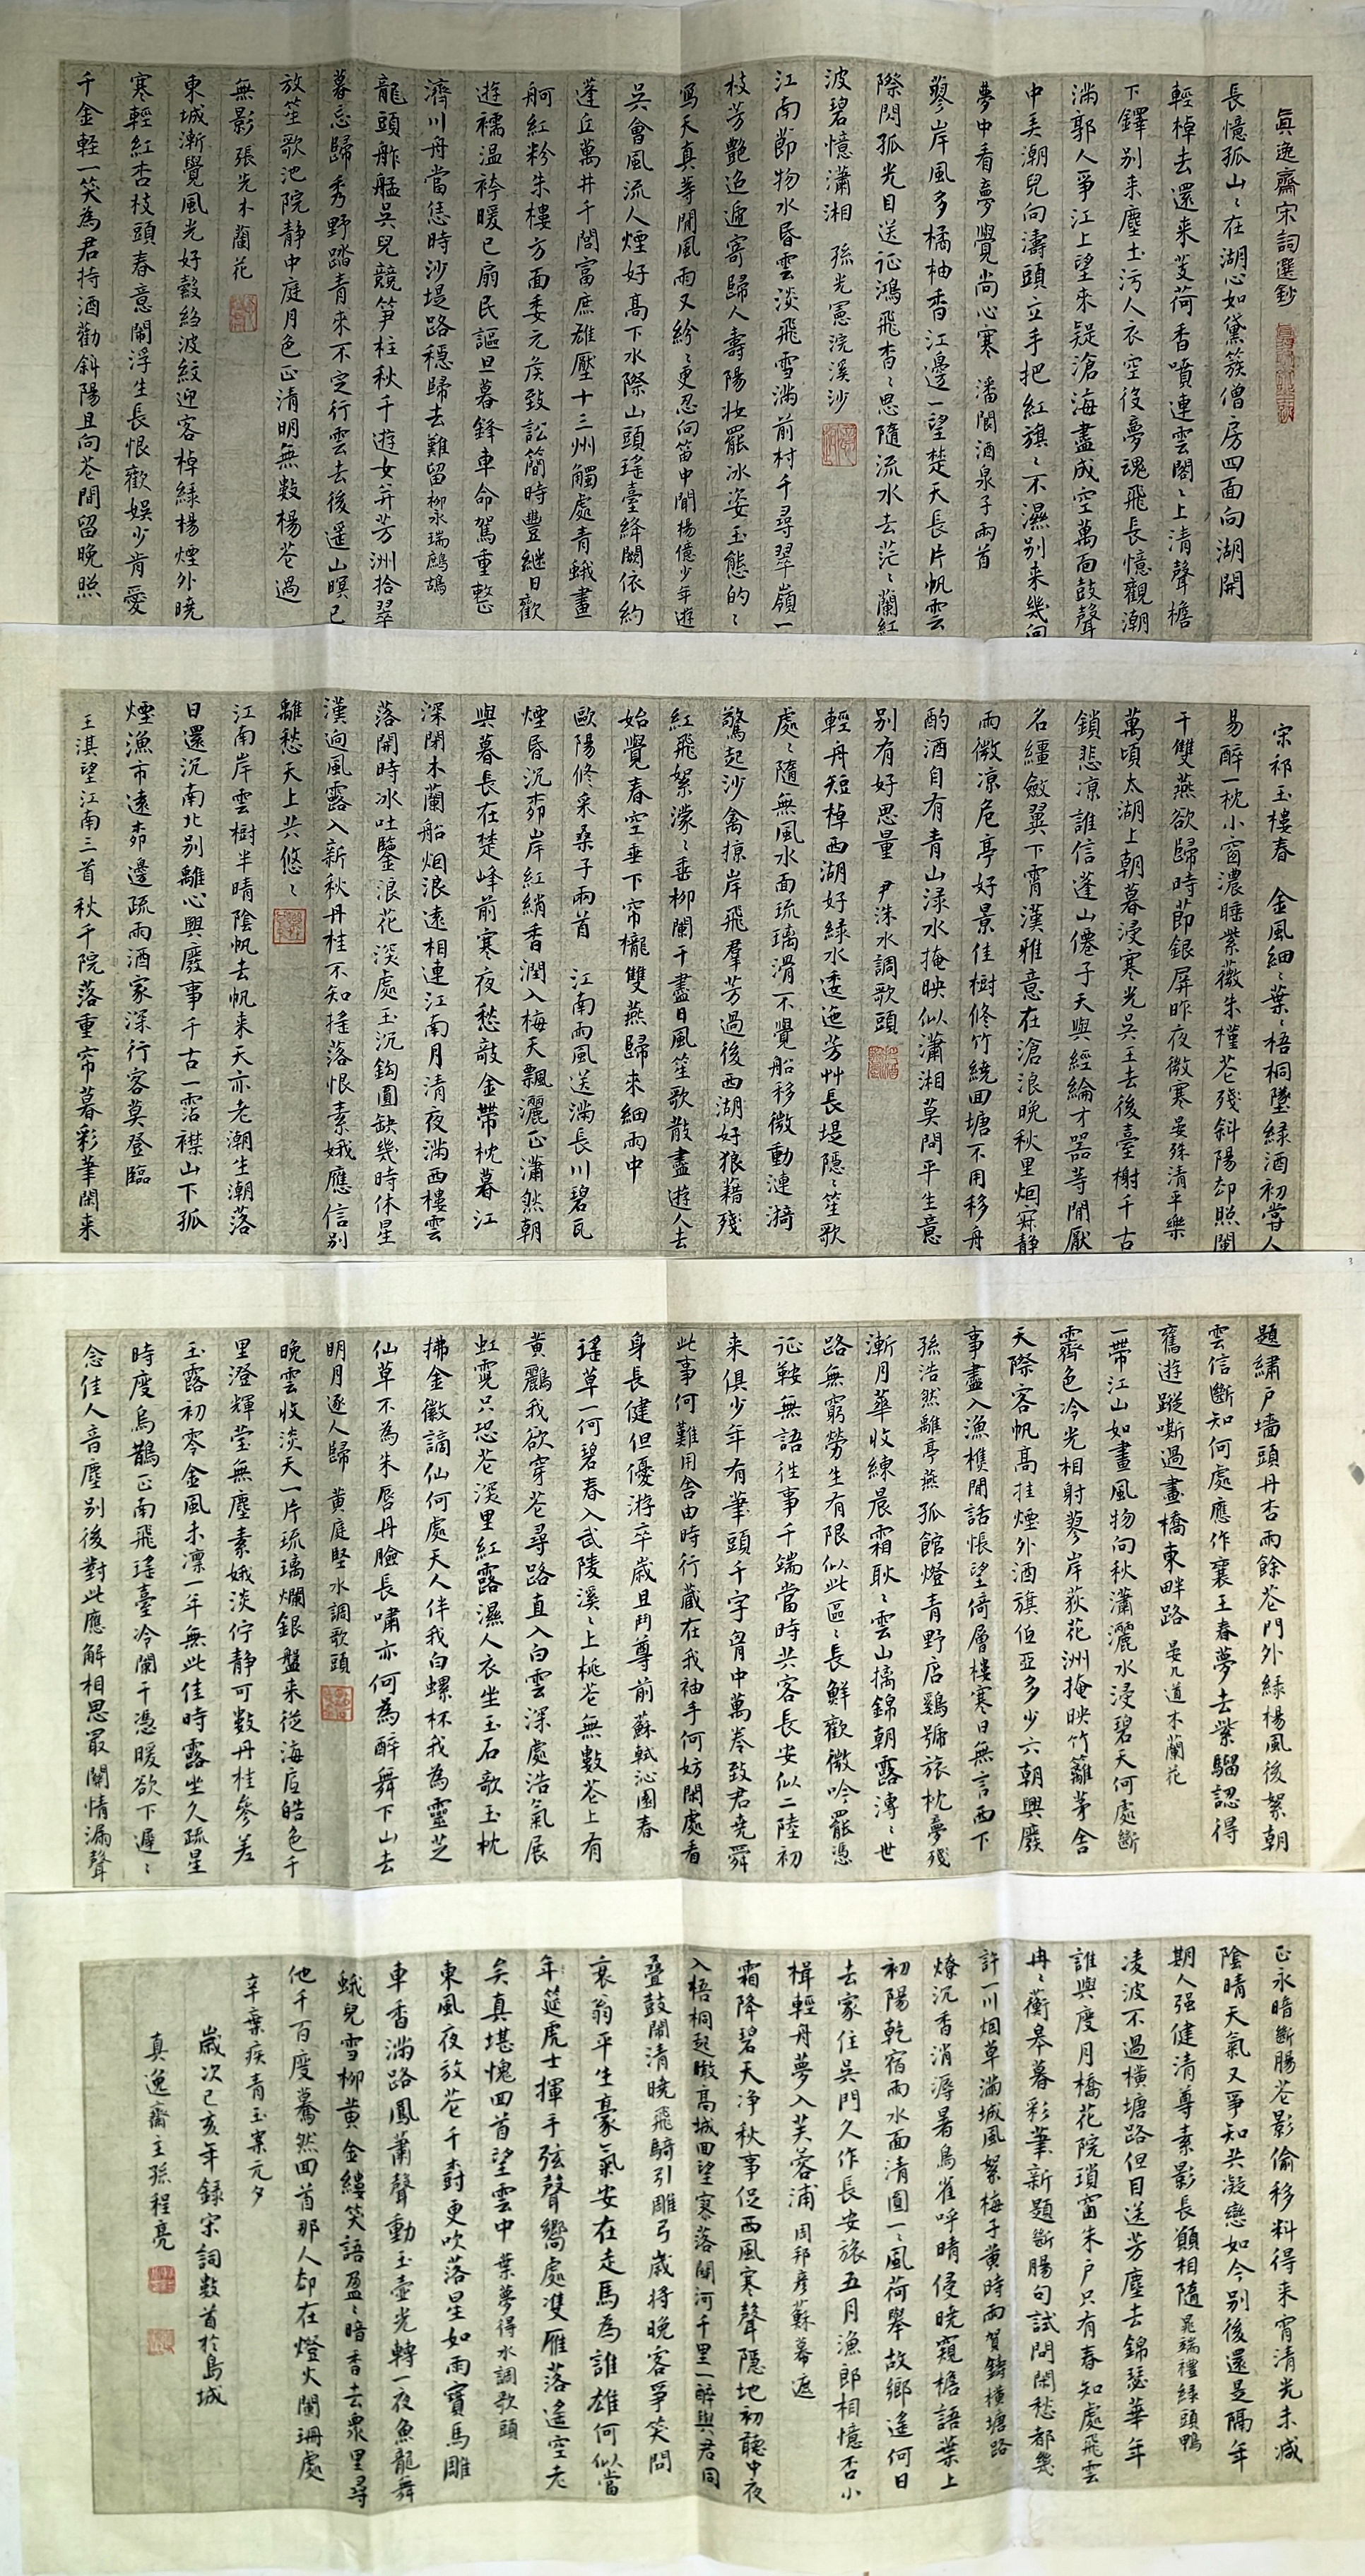 真逸齋宋詞選鈔
長憶孤山〻在湖心如黛簇僧房四面向湖開
輕棹去還来芰荷香噴連雲閣〻上清聲檐
下鐸别来塵土污人衣空役夢魂飛長憶觀潮
滿郭人爭江上望来疑滄海盡成空萬面鼓聲
中弄潮兒向濤頭立手把紅旗〻不濕别来幾向
夢中看夢覺尚心寒 潘閬酒泉子兩首
蓼岸風多橘柚香江邊一望楚天長片帆雲
際閃孤光目送征鴻飛杳〻思隨流水去茫〻蘭紅
波碧憶瀟湘 孫光憲浣溪沙
江南節物水昏雲淡飛雪滿前村千尋翠嶺一
枝芳艷迢遞寄歸人壽陽妆罷冰姿玉態的〻
寫天真等閒風雨又紛〻更忍向笛中聞楊億少年遊
吳會風流人煙好高下水際山頭瑤臺絳闕依約
蓬丘萬井千閭富庶雄壓十三州觸處青蛾畫
舸紅粉朱樓方面委元侯致訟簡時豐繼日歡
遊襦温袴暖已扇民謳旦暮鋒車命駕重整
濟川舟當恁時沙堤路穩歸去難留柳永瑞鷓鴣
龍頭舴艋吳兒競笋柱秋千遊女并芳洲拾翠
暮忘歸秀野踏青来不定行雲去後遥山暝已
放笙歌池院静中庭月色正清明無數楊花過
無影張先木蘭花
東城漸覺風光好縠縐波紋迎客棹緑楊煙外曉
寒輕紅杏枝頭春意鬧浮生長恨歡娱少肯愛
千金輕一笑為君持酒勸斜陽且向花間留晚照
宋祁玉樓春 金風細〻葉〻梧桐墜緑酒初嘗人
易醉一枕小窗濃睡紫薇朱槿花殘斜陽却照闌
干雙燕欲歸時節銀屏昨夜微寒晏殊清平樂
萬頃太湖上朝暮浸寒光吳王去後臺榭千古
鎖悲凉誰信蓬山僊子天與經綸才器等閒厭
名繮斂翼下霄漢雅意在滄浪晚秋里烟寂静
雨微凉危亭好景佳樹修竹繞回塘不用移舟
酌酒自有青山渌水掩映似瀟湘莫問平生意
别有好思量 尹洙水調歌頭
輕舟短棹西湖好緑水逶迤芳艸長堤隱〻笙歌
處〻隨無風水面琉璃滑不覺船移微動漣漪
驚起沙禽掠岸飛羣芳過後西湖好狼藉殘
紅飛絮濛〻垂柳闌干盡日風笙歌散盡遊人去
始覺春空垂下帘櫳雙燕歸来細雨中
歐陽修采桑子兩首 江南雨風送滿長川碧瓦
煙昏沉柳岸紅綃香潤入梅天飄灑正瀟然朝
與暮長在楚峰前寒夜愁敲金帶枕暮江
深閉木蘭船烟浪遠相連江南月清夜滿西樓雲
落開時冰吐鑒浪花淡處玉沉鈎圓缺幾時休星
漢迥風露入新秋丹桂不知摇落恨素娥應信别
離愁天上共悠〻
江南岸雲樹半晴陰帆去帆来天亦老潮生潮落
日還沉南北别離心興廢事千古一霑襟山下孤
煙漁市遠柳邊疏雨酒家深行客莫登臨
王淇望江南三首 秋千院落重帘暮彩筆閑来
題繡戶墙頭丹杏雨餘花門外緑楊風後絮朝
雲信斷知何處應作襄王春夢去紫騮認得
舊遊蹤嘶過畫橋東畔路 晏几道木蘭花
一帶江山如畫風物向秋瀟灑水浸碧天何處斷
霽色冷光相射蓼岸荻花洲掩映竹籬茅舍
天際客帆高挂煙外酒旗伍亞多少六朝興廢
事盡入漁樵閒話悵望倚層樓寒日無言西下
孫浩然離亭燕孤館燈青野店鷄號旅枕夢殘
漸月華收練晨霜耿〻雲山摛錦朝露漙〻世
路無窮勞生有限似此區〻長鮮歡微吟罷憑
征鞍無語往事千端當時共客長安似二陸初
来俱少年有筆頭千字胷中萬卷致君堯舜
此事何難用舍由時行藏在我袖手何妨閑處看
身長健但優游卒歲且鬥尊前蘇軾沁園春
瑤草一何碧春入武陵溪〻上桃花無數花上有
黄鸝我欲穿花尋路直入白雲深處浩氣展
虹霓只恐花深里紅露濕人衣坐玉石歌玉枕
拂金徽謫仙何處無人伴我白螺杯我為靈芝
仙草不為朱唇丹臉長嘯亦何為醉舞下山去
明月逐人歸 黄庭堅水調歌頭
晚雲收淡天一片琉璃爛銀盤来從海底皓色千
里澄輝瑩無塵素娥淡佇静可數丹桂參差
玉露初零金風未凛一年無此佳時露坐久疏星
時度烏鵲正南飛瑤臺冷闌干憑暖欲下遲〻
念佳人音塵别後對此應解相思最關情漏聲
正永暗斷腸花影偷移料得来宵清光未減
陰晴天氣又爭知共凝戀如今别後還是隔年
期人强健清尊素影長願相隨晁端禮緑頭鴨
凌波不過横塘路但目送芳塵去錦瑟華年
誰與度月橋花院瑣窗朱戶只有春知處飛雲
冉〻蘅皋暮彩筆新題斷腸句試問閑愁都幾
許一川烟草滿城風絮梅子黄時雨賀鑄横塘路
燎沉香消溽暑鳥雀呼晴侵曉窺檐語葉上
初陽乾宿雨水面清圓一〻風荷舉故鄉遥何日
去家住吳門久作長安旅五月漁郎相憶否小
楫輕舟夢入芙蓉浦 周邦彦蘇幕遮
霜降碧天净秋事促西風寒聲隱地初聽中夜
入梧桐起瞰高城回望寥落關河千里一醉與君同
疊鼓鬧清曉飛騎引雕弓歲将晚客爭笑問
衰翁平生豪氣安在走馬為誰雄何似當
年筵虎士揮手弦聲響處雙雁落遥空老
矣真堪愧回首望雲中 葉夢得水調歌頭
東風夜放花千樹更吹落星如雨寶馬雕
車香滿路鳳簫聲動玉壺光轉一夜魚龍舞
蛾兒雪柳黄金縷笑語盈〻暗香去衆里尋
他千百度驀然回首那人却在燈火闌珊處
辛棄疾青玉案元夕
歲次己亥年録宋詞數首於島城
真逸齋主孫程亮